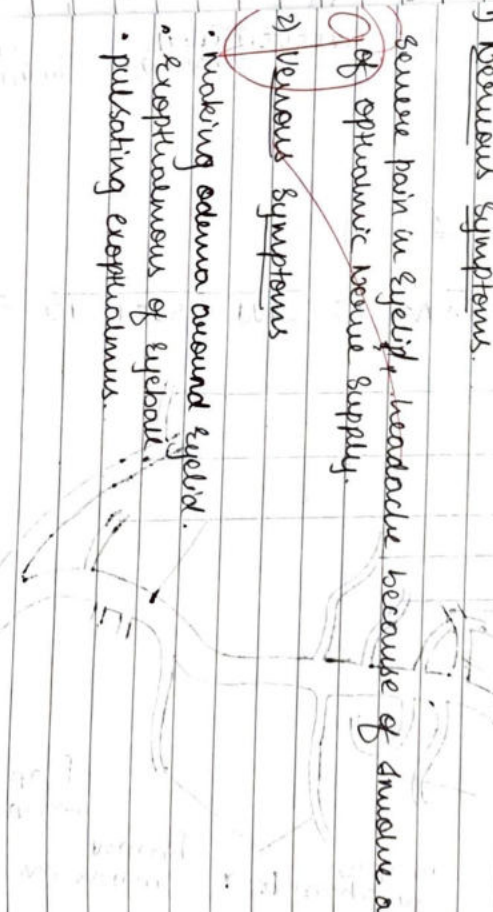 1) Nervous symptoms.
Severe pain in eyelid, headache because of involve
of opthalmic nerve supply.
2) Venous symptoms
• making odema around eyelid.
• exopthalmous of eyeball
• pulsating exopthalmus.